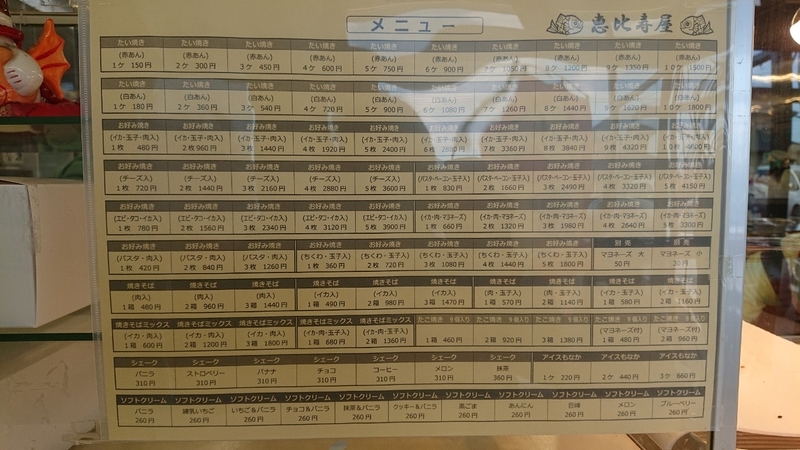 メニュー
恵比寿屋
たい焼き たい焼き たい焼き たい焼き たい焼き たい焼き たい焼き たい焼き たい焼き たい焼き
(赤あん) (赤あん) (赤あん) (赤あん) (赤あん) (赤あん) (赤あん) (赤あん) (赤あん) (赤あん)
1ケ 150円 2ケ 300円 3ケ 450円 4ケ 600円 5ケ 750円 6ケ 900円 7ケ 1050円 8ケ 1200円 9ケ 1350円 10ケ 1500円
たい焼き たい焼き たい焼き たい焼き たい焼き たい焼き たい焼き たい焼き たい焼き たい焼き
(白あん) (白あん) (白あん) (白あん) (白あん) (白あん) (白あん) (白あん) (白あん) (白あん)
1ケ 180円 2ケ 360円 3ケ 540円 4ケ 720円 5ケ 900円 6ケ 1080円 7ケ 1260円 8ケ 1440円 9ケ 1620円 10ケ 1800円
お好み焼き お好み焼き お好み焼き お好み焼き お好み焼き お好み焼き お好み焼き お好み焼き お好み焼き お好み焼き
(イカ・玉子・肉入) (イカ・玉子・肉入) (イカ・玉子・肉入) (イカ・玉子・肉入) (イカ・玉子・肉入) (イカ・玉子・肉入) (イカ・玉子・肉入) (イカ・玉子・肉入) (イカ・玉子・肉入) (イカ・玉子・肉入)
1枚 480円 2枚 960円 3枚 1440円 4枚 1920円 5枚 2400円 6枚 2880円 7枚 3360円 8枚 3840円 9枚 4320円 10枚 4800円
お好み焼き お好み焼き お好み焼き お好み焼き お好み焼き お好み焼き お好み焼き お好み焼き お好み焼き お好み焼き
(チーズ入) (チーズ入) (チーズ入) (チーズ入) (チーズ入) (パスタ・ベーコン・玉子入) (パスタ・ベーコン・玉子入) (パスタ・ベーコン・玉子入) (パスタ・ベーコン・玉子入) (パスタ・ベーコン・玉子入)
1枚 720円 2枚 1440円 3枚 2160円 4枚 2880円 5枚 3600円 1枚 830円 2枚 1660円 3枚 2490円 4枚 3320円 5枚 4150円
お好み焼き お好み焼き お好み焼き お好み焼き お好み焼き お好み焼き お好み焼き お好み焼き お好み焼き お好み焼き
(エビ・タコ・イカ入) (エビ・タコ・イカ入) (エビ・タコ・イカ入) (エビ・タコ・イカ入) (エビ・タコ・イカ入) (イカ・肉・マヨネーズ) (イカ・肉・マヨネーズ) (イカ・肉・マヨネーズ) (イカ・肉・マヨネーズ) (イカ・肉・マヨネーズ)
1枚 780円 2枚 1560円 3枚 2340円 4枚 3120円 5枚 3900円 1枚 660円 2枚 1320円 3枚 1980円 4枚 2640円 5枚 3300円
お好み焼き お好み焼き お好み焼き お好み焼き お好み焼き お好み焼き お好み焼き お好み焼き 別売 別売
(パスタ・肉入) (パスタ・肉入) (パスタ・肉入) (ちくわ・玉子入) (ちくわ・玉子入) (ちくわ・玉子入) (ちくわ・玉子入) (ちくわ・玉子入) マヨネーズ 大 マヨネーズ 小
1枚 420円 2枚 840円 3枚 1260円 1枚 360円 2枚 720円 3枚 1080円 4枚 1440円 5枚 1800円 50円 30円
焼きそば 焼きそば 焼きそば 焼きそば 焼きそば 焼きそば 焼きそば 焼きそば 焼きそば 焼きそば
(肉入) (肉入) (肉入) (イカ入) (イカ入) (イカ入) (肉・玉子入) (肉・玉子入) (イカ・玉子入) (イカ・玉子入)
1箱 480円 2箱 960円 3箱 1440円 1箱 490円 2箱 980円 3箱 1470円 1箱 570円 2箱 1140円 1箱 580円 2箱 1160円
焼きそばミックス 焼きそばミックス 焼きそばミックス 焼きそばミックス 焼きそばミックス たこ焼き 9個入り たこ焼き 9個入り たこ焼き 9個入り たこ焼き 9個入り たこ焼き 9個入り
(イカ・肉入) (イカ・肉入) (イカ・肉入) (イカ・肉・玉子入) (イカ・肉・玉子入) (マヨネーズ付) (マヨネーズ付)
1箱 600円 2箱 1200円 3箱 1800円 1箱 680円 2箱 1360円 1箱 460円 2箱 920円 3箱 1380円 1箱 480円 2箱 960円
シェーク シェーク シェーク シェーク シェーク シェーク シェーク アイスもなか アイスもなか アイスもなか
バニラ ストロベリー バナナ チョコ コーヒー メロン 抹茶
310円 310円 310円 310円 310円 310円 360円 1ケ 220円 2ケ 440円 3ケ 660円
ソフトクリーム ソフトクリーム ソフトクリーム ソフトクリーム ソフトクリーム ソフトクリーム ソフトクリーム ソフトクリーム ソフトクリーム ソフトクリーム ソフトクリーム
バニラ 練乳いちご いちご&バニラ チョコ&バニラ 抹茶&バニラ クッキー&バニラ 黒ごま あんにん 巨峰 メロン ブルーベリー
260円 260円 260円 260円 260円 260円 260円 260円 260円 260円 260円